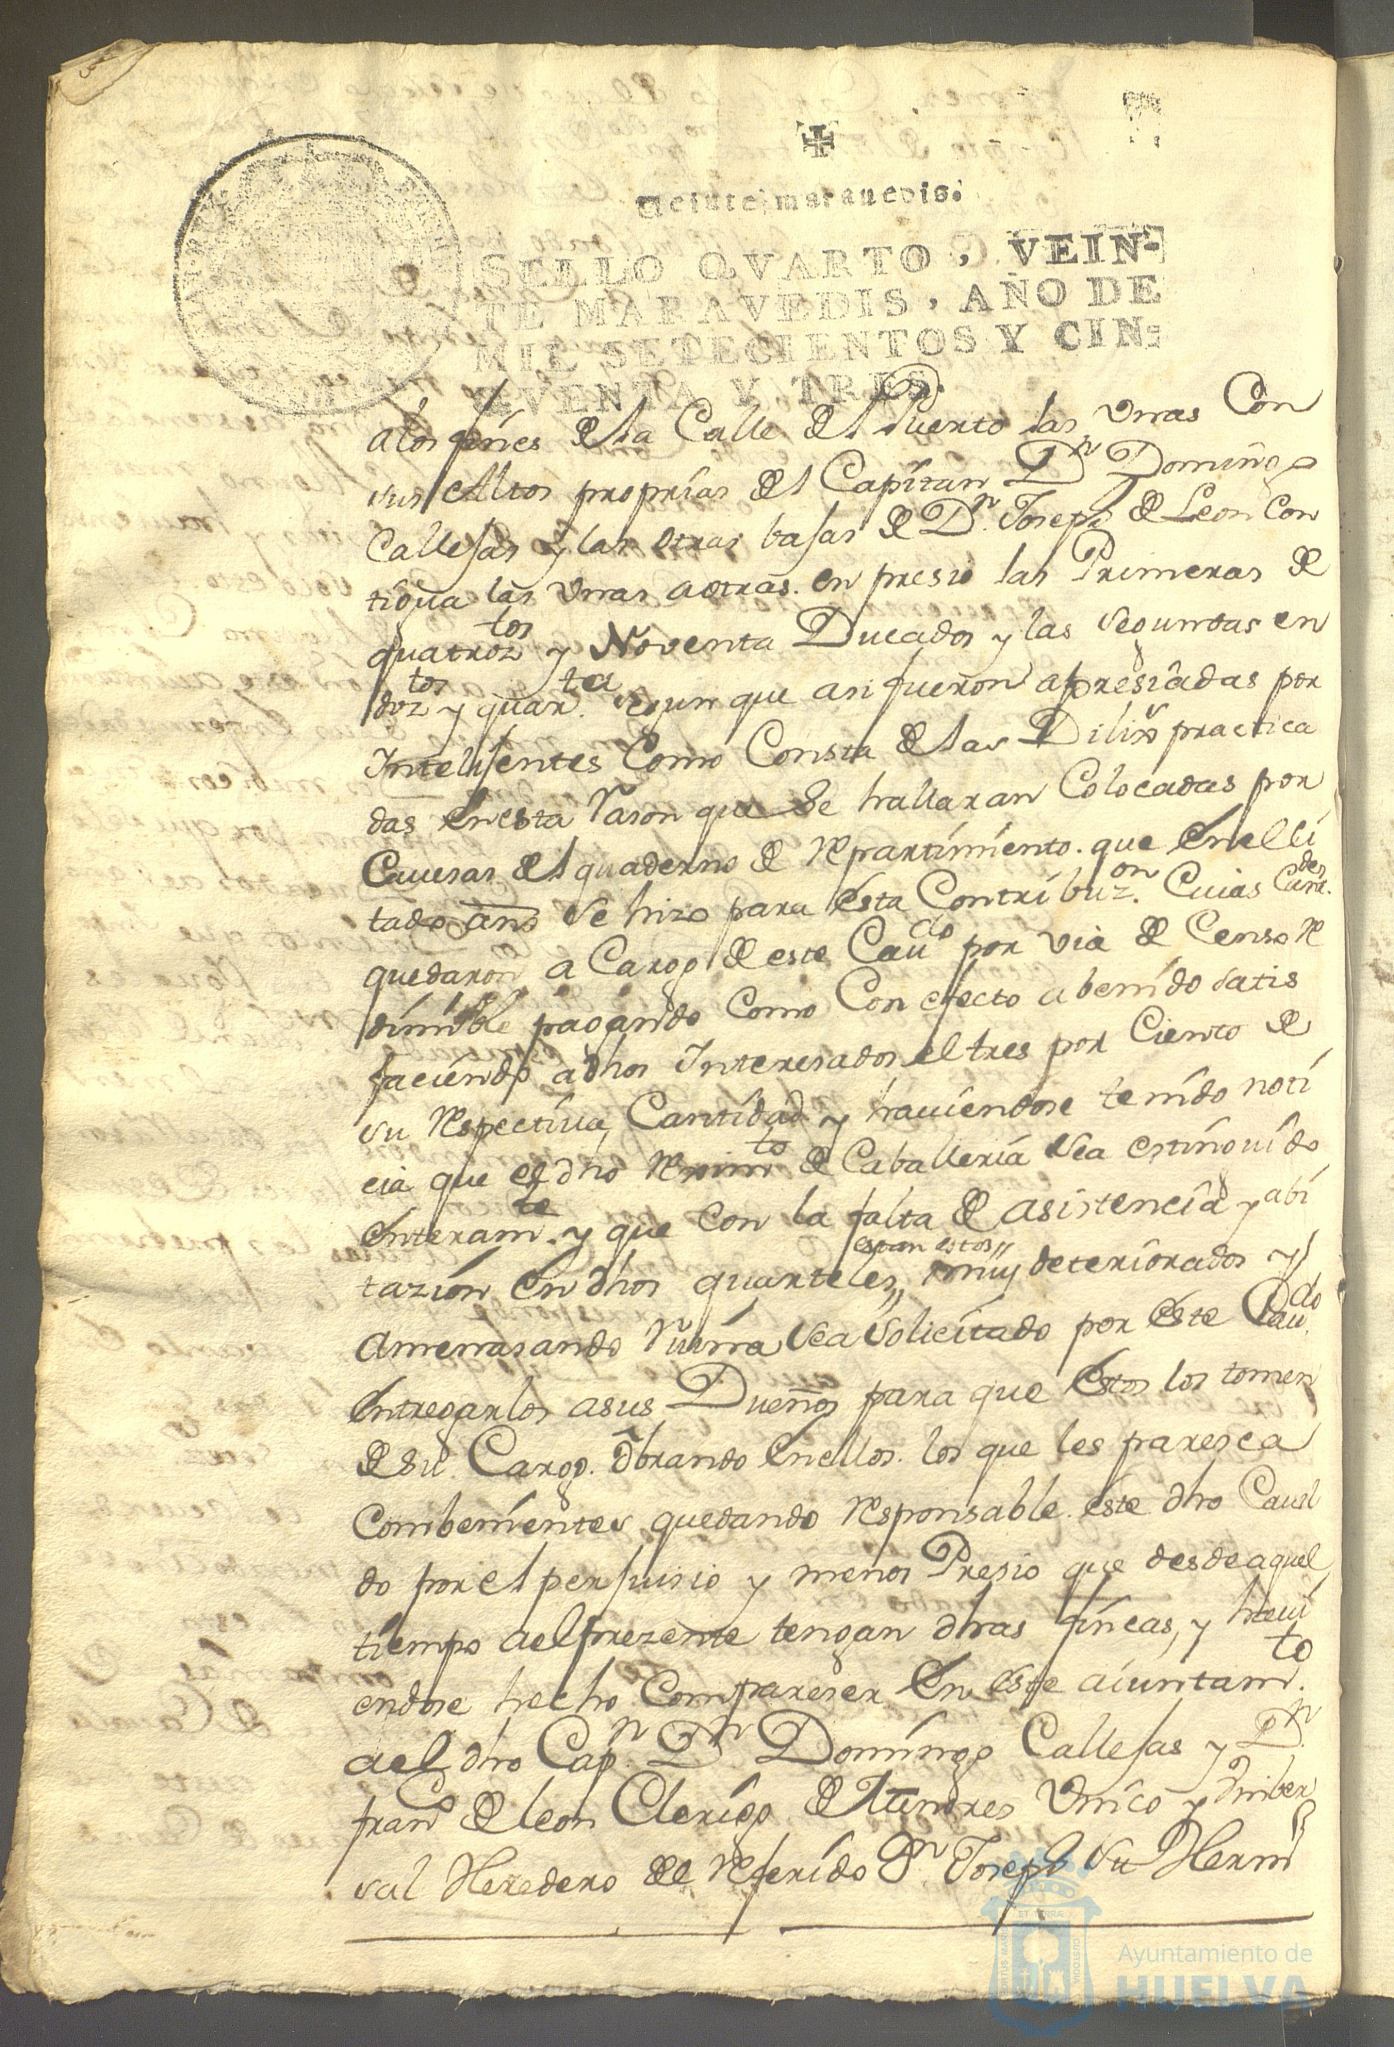 Veinte maravedis.
SELLO QVARTO, VEIN-
TE MARAVEDIS, AÑO DE
MIL SETECIENTOS Y CIN-
QVENTA Y TRES.
a los fines de la Calle del Puerto las Unas Con
sus Altos proprias del Capitan Dn Domingo
Callejas y las otras bajas de Dn Joseph de Leon Con
tigua las Unas a otras. en presio las Primeras de
quatroztos y Noventa Ducados y las segundas en
doztos y quarta segun que asi fueron apresiadas por
Intelijentes Como Consta de las Dilixs practica
das en esta rason que se hallaran Colocadas por
Cavesas del quaderno de repartimiento. que en el Ci
tado año se hizo para esta Contribuzon. Cuias Cantdes.
quedaron a Cargo de este Cavdo por via de Censo re
dimible pagando Como Con efecto a benido satis
faciendo a dhos Interesados el tres por Ciento de
su respectiva Cantidad y haviendose tenido noti
cia que el dho regimto de Caballeria sea estinguido
enteramte. y que con la falta de asistencia y abi
tazion en dhos quarteles estan estos muy deteriorados y
Amenasando ruina sea solicitado por este Cavdo
entregarlos a sus Dueños para que estos los tomen
de su Cargo. obrando en ellos. los que les paresca
Combenientes quedando responsable este dho Cavil
do por el perjuisio y menos Presio que desde aquel
tiempo a el prezente tengan dhas fincas, y havi
endose hecho Compareser en este aiuntamto.
a el dho Capn. Dn Domingo Callejas y Dn
Franco de leon Clerigo de Menores Unico y Vniber
sal Heredero de el referido Dn Joseph su Hermo
Ayuntamiento de
HUELVA